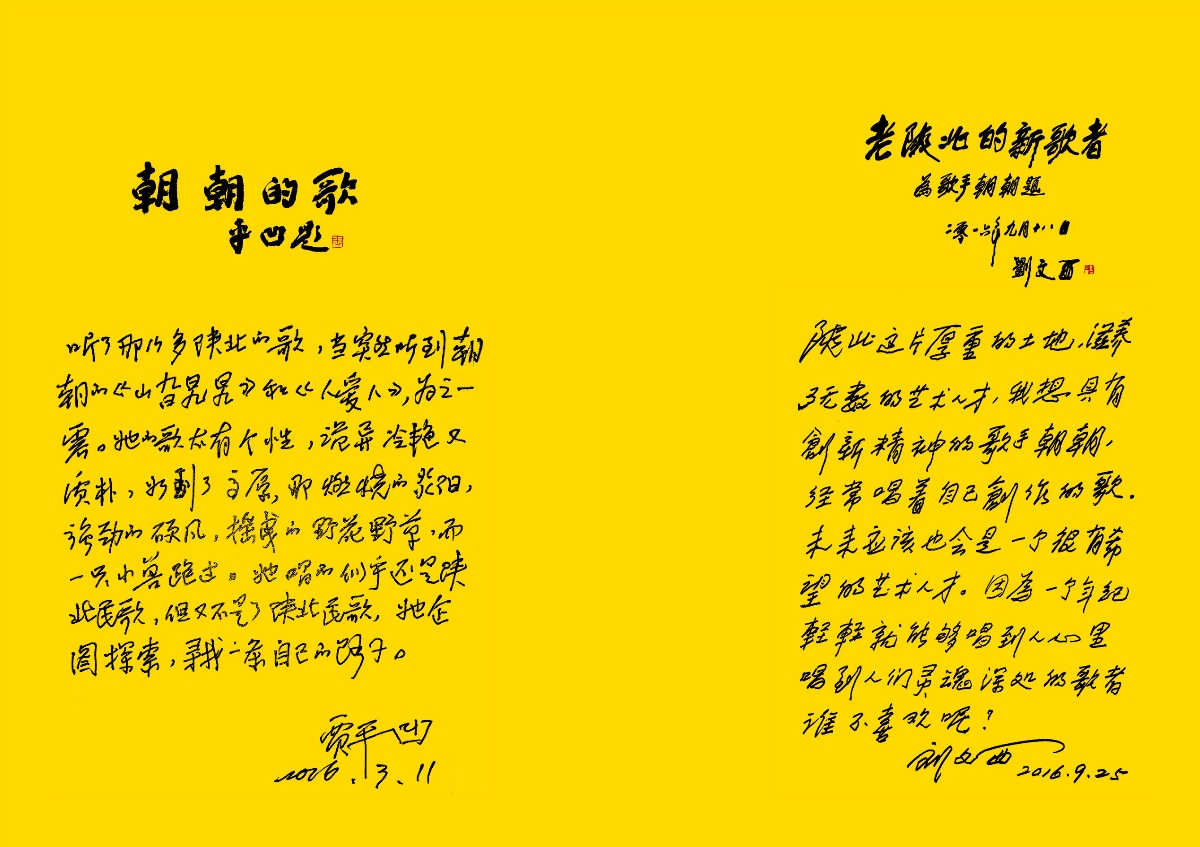 朝朝的歌
平凹题
听了那么多陕北的歌，当突然听到朝
朝的《山旮旯旯》和《人爱人》，为之一
震。她的歌太有个性，诡异冷艳又
质朴，如到了高原，那燃烧的
强劲的硕风，摇曳的野花野草，而
一只小兽跑过。她唱的似乎还是陕
北民歌，但又不是了陕北民歌，她企
图探索，寻找一条自己的路子。
贾平凹
2016.3.11
老陝北的新歌者
為歌手朝朝題
二零一六年九月十八日
劉文西
陕北这片厚重的土地，滋养
了无数的艺术人才，我想具有
創新精神的歌手朝朝，
经常唱着自己創作的歌．
未来应该也会是一个很有希
望的艺术人才。因為一个年纪
輕輕就能够唱到人心里
唱到人们灵魂深处的歌者
谁不喜欢呢？
刘文西
2016.9.25